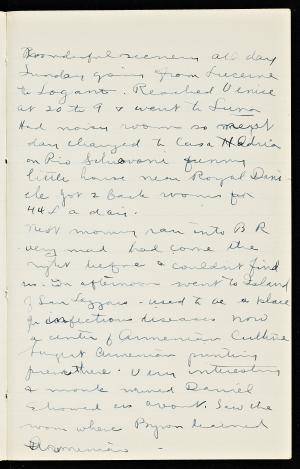 Wonderful scenery all day
Sunday going from Lucerne
to Logano. Reached Venice
at 20 to 9 & went to Luna
Had noisy rooms so next
day changed to Casa Adria
on Rio Schiavoni funny
little house near Royal Dani-
ele for 2 back rooms for
44 £ a day.
Next morning ran into B R
very mad had come the
night before & couldn't find
us. In afternoon went to Island
of San Lazzaro - used to be a place
for infectious diseases now
a center of Armenian Culture
largest Armenian printing
press there. Very interesting
& monk named Daniel
showed us about. Saw the
room where Byron learned
Armenian -